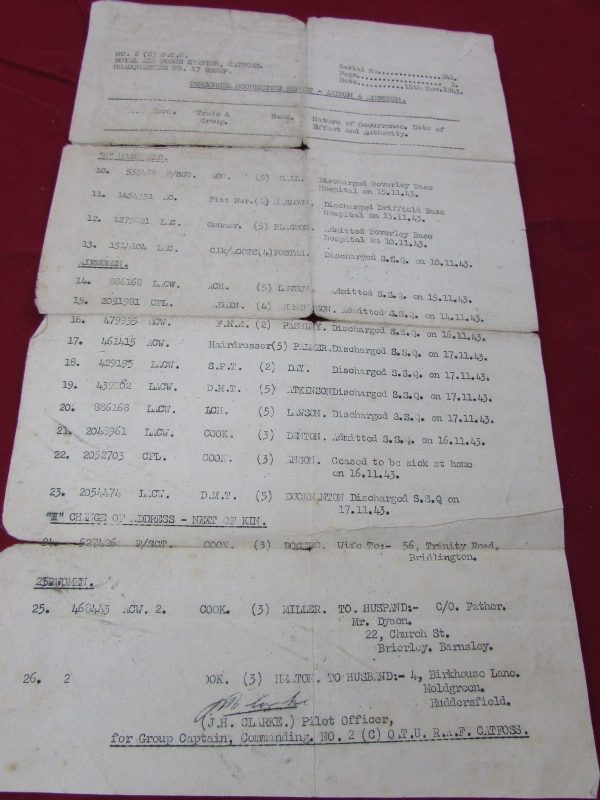 NO. 2 (C) O.T.U.
ROYAL AIR FORCE STATION, CATFOSS.
HEADQUARTERS NO. 17 GROUP.
Serial No.
Page 2.
Date 18th Nov. 1943.
PERSONNEL OCCURRENCE REPORT - AIRMEN & AIRWOMEN.
Rank. Trade & Group. Name. Nature of Occurrence. Date of Effect and Authority.
10. F/SGT. ACH. (5) HALL. Discharged Beverley Base
Hospital on 15.11.43.
11. 1454391 Fitt Mar. Discharged Driffield Base
Hospital on 13.11.43.
12. 1275821 LAC. Gunner. (5) Admitted Beverley Base
Hospital on 10.11.43.
13. 1514104 LAC. Clk/ACCTS (4) FOSTER. Discharged S.S.Q. on 10.11.43.
AIRWOMEN.
14. 886168 LACW. ACH. (5) LAWSON. Admitted S.S.Q. on 13.11.43.
15. 2031981 CPL. ADMIN. (4) Admitted S.S.Q. on 14.11.43.
16. 479935 ACW. F.M.S. (2) Discharged S.S.Q. on 16.11.43.
17. 461415 ACW. Hairdresser (5) PALMER. Discharged S.S.Q. on 17.11.43.
18. 429193 LACW. S.P.T. (2) DAY. Discharged S.S.Q. on 17.11.43.
19. LACW. D.M.T. (5) ATKINSON Discharged S.S.Q. on 17.11.43.
20. 886168 LACW. ACH. (5) LAWSON. Discharged S.S.Q. on 17.11.43.
21. 2048961 LACW. COOK. (3) DENTON. Admitted S.S.Q. on 16.11.43.
22. 2052703 CPL. COOK. (3) ANSON. Ceased to be sick at home
on 16.11.43.
23. 2054474 LACW. D.M.T. (5) Discharged S.S.Q on
17.11.43.
CHANGE OF ADDRESS - NEXT OF KIN.
24. 527426 F/SGT. COOK. (3) ROGERS. Wife To:- 56, Trinity Road,
Bridlington.
AIRWOMEN.
25. 468443 ACW. 2. COOK. (3) MILLER. TO. HUSBAND:- C/O. Father.
Mr. Dyson.
22, Church St.
Brierley. Barnsley.
26. 2 OOK. (3) TO HUSBAND:- 4, Birkhouse Lane.
Moldgreen.
Huddersfield.
(J.H. CLARKE.) Pilot Officer,
for Group Captain, Commanding. NO. 2 (C) O.T.U. R.A.F. CATFOSS.